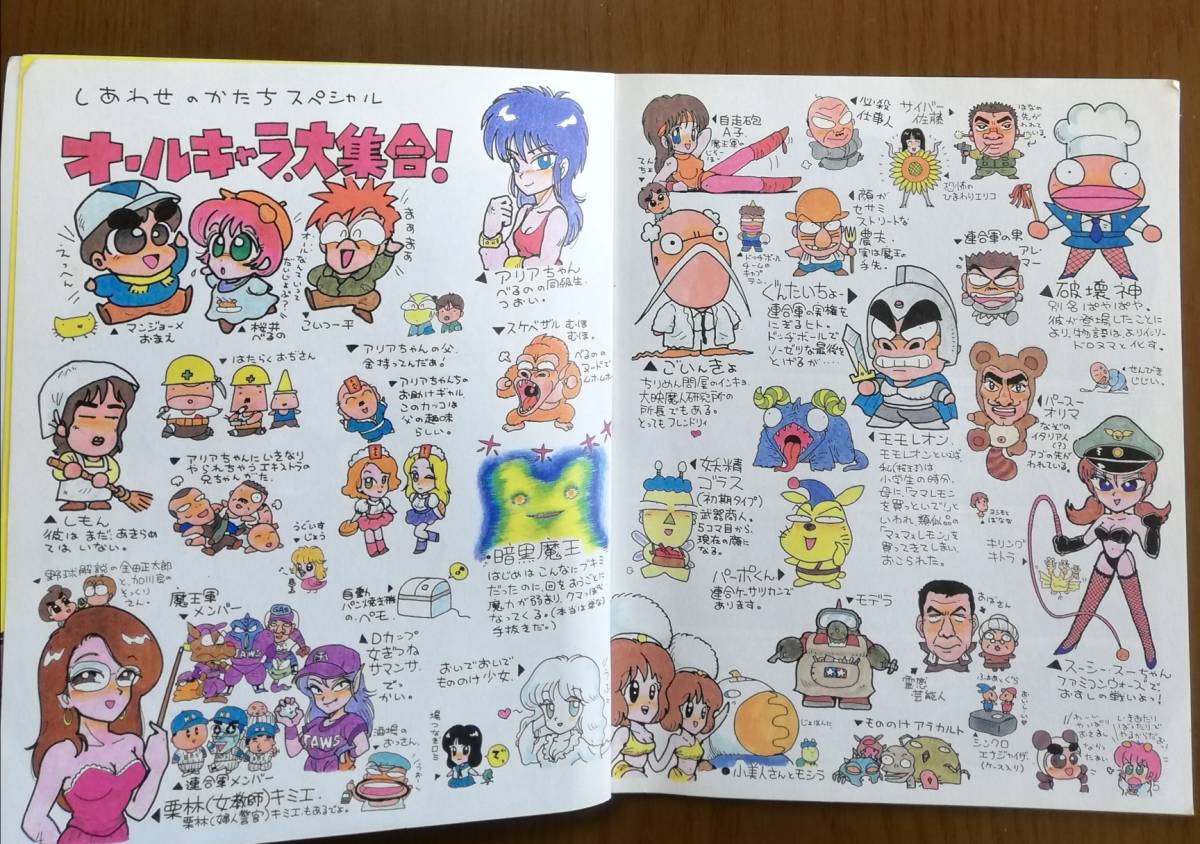 しあわせのかたちスペシャル
オールキャラ大集合!
えっへん
マンジョーメ
おまえ
桜井の
べるの
まぁまぁまぁ
こいつ一平
アリアちゃん
べるのの同級生。
つおい。
スケベザル
むほ
むほ。
べるのの
ヌードで
ムホムホ
はたらくおぢさん
アリアちゃんの父。
金持ってんだぁ!
アリアちゃんちの
お助けギャル。
このカッコは
父の趣味
らしい。
しもん
彼はまだ、あきらめ
てはいない。
アリアちゃんにいきなり
やられちゃうエキストラの
兄ちゃんたち。
うぐいす
じょう
暗黒魔王
はじめはこんなにブキミ
だったのに、回をおうごとに
魔力が弱まり、クマっぽく
なってくる。(本当は単なる
手抜きだ。)
野球解説の金田正太郎
と、加川島の
そっくり
さん。
魔王軍
メンバー
GAS
TAWS
自動
パン焼き機
のペモ。
Dカップ
女ぎつね
サマンサ。
で。
かい。
TAWS
おいでおいで
もののけ少女。
酒場の
おっさん。
場つなぎロミ
で。
連合軍メンバー
栗林(女教師)キミエ。
栗林(婦人警官)キミエもあるでよ。
4
自走砲
A子。
てんちょ
必殺
仕事人
サイバー
佐藤
はなの
先が
われて
いる。
恐怖の
ひまわりエリコ
ドッヂボール
チームの
キャプ
テン。
顔が
セサミ
ストリートな
農夫。
実は魔王の
手先。
連合軍の男
アレ・
マー
破壊神
別名ぱやぱや。
彼が登場したことに
より、物語はよりいっそー
ドロヌマと化す。
ぐんたいちょー
連合軍の実権を
にぎるヒト。
ドッヂボールで
ソーゼツな最後を
とげるが……
ごいんきょ
ちりめん問屋のインキョ。
大映魔人研究所の
所長でもある。
とってもフレンドリィ
せんびき
じじい。
パースー
オリマ
なぞの
イタリア人
(?)
アゴの先が
われている。
モモレオン。
モモレオンといえば、
私(桜玉)は
小学生の時分、
母に「ママレモン
を買っといで!」と
いわれ、類似品の
「マミマミレモン」を
買ってきてしまい、
おこられた。
妖精
ゴラス
(初期タイプ)
武器商人。
5コマ目から、
現在の顔に
なる。
パーポくん
連合ケーサツカンで
あります。
よらもと
ばなな
キリング
キトラ
モデラ
おばさん
霊感
芸能人
スーシー・スーちゃん
ファミコンウォーズで
おすしの戦いよっ!
小美人さんとモシラ
もののけアラカルト
シンクロ
エナジャイザー
(ケース入り)
5